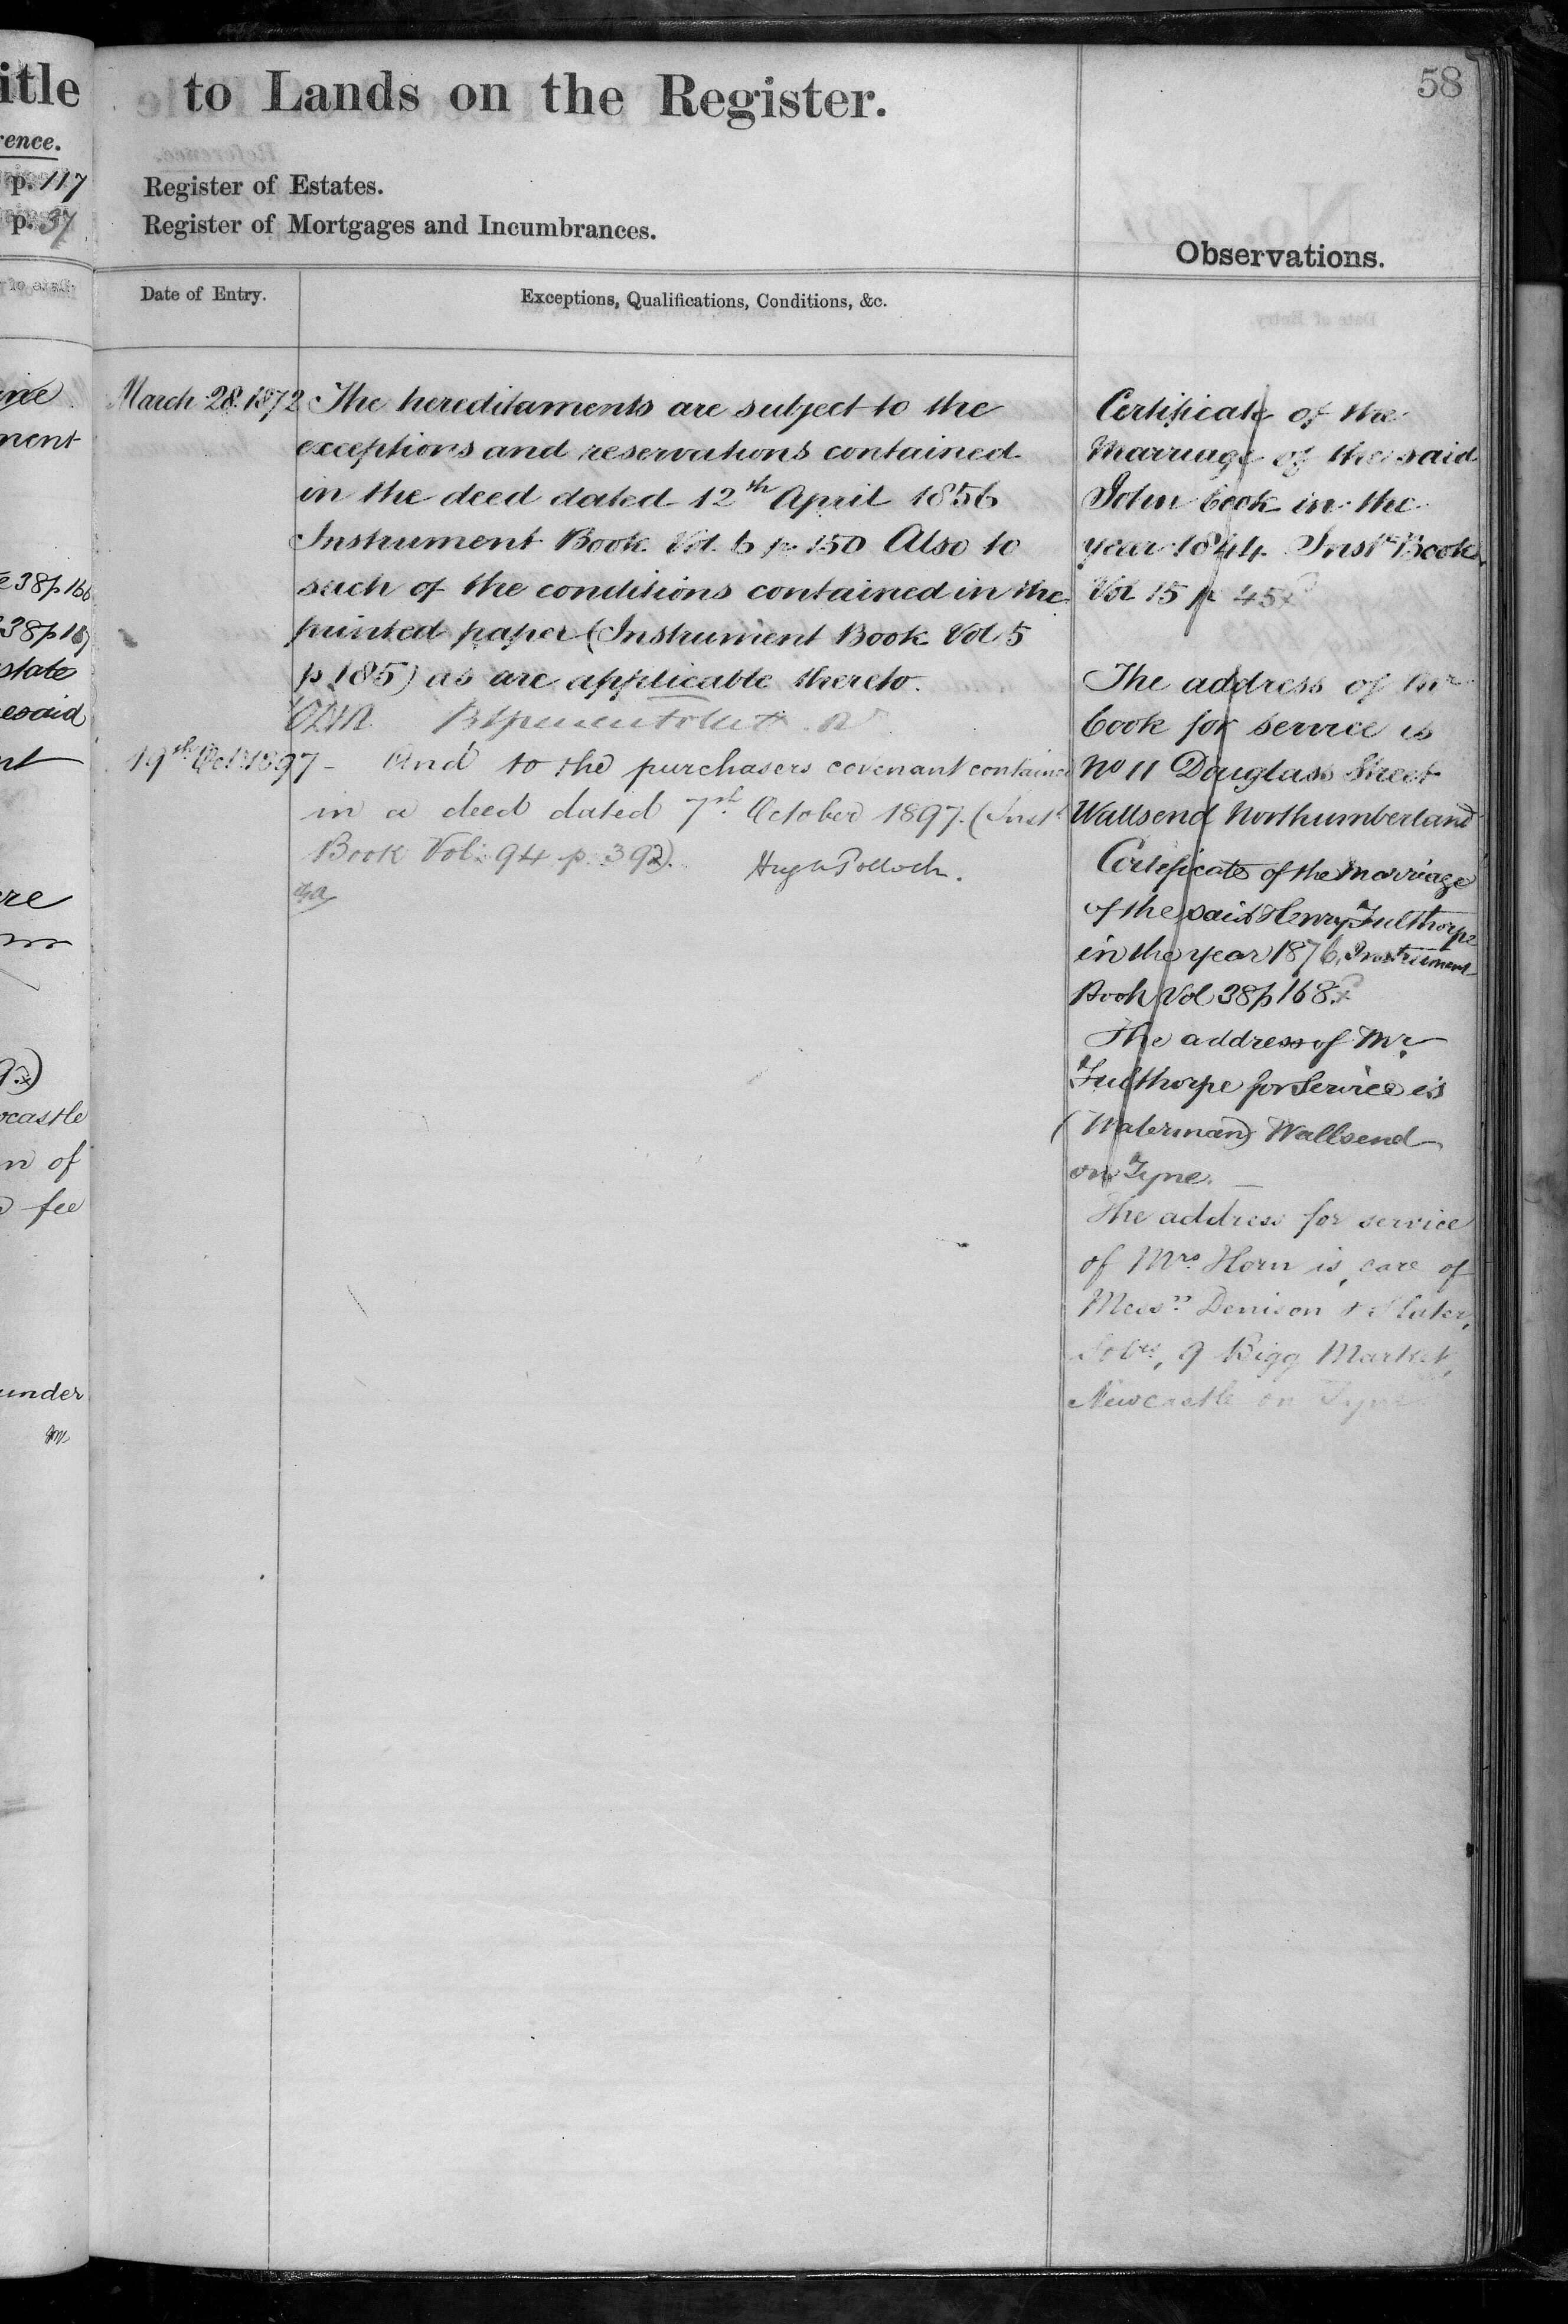 itle
rence.
p. 117
p. 37
ment
38 p 166
38 p 167
state
esaid
nt
ere
9x)
castle
n of
fee
under
to Lands on the Register.
58
Register of Estates.
Register of Mortgages and Incumbrances.
Observations.
Date of Entry.
Exceptions, Qualifications, Conditions, &c.
March 28. 1872
The hereditaments are subject to the
exceptions and reservations contained
in the deed dated 12th April 1856
Instrument Book Vol. 6 p. 150 Also to
such of the conditions contained in the
printed paper (Instrument Book Vol 5
p 185) as are applicable thereto.
19th Octr 1897 - And to the purchasers covenant contained
in a deed dated 7th October 1897. (Inst
Book Vol: 94 p. 392).
Hugh Pollock.
Certificate of the
Marriage of the said
John Cook in the
year 1844. Inst Book
Vol 15 p 45x
The address of Mr
Cook for service is
No 11 Douglass Street
Wallsend Northumberland
Certificate of the Marriage
of the said Henry Fulthorpe
in the year 1876, Instrument
Book Vol 38 p 168.x
The address of Mr
Fulthorpe for Service is
(Waterman) Wallsend
on Tyne.
The address for service
of Mrs. Horn is, care of
Messrs Denison & Slater,
Solrs, 9 Bigg Market,
Newcastle on Tyne